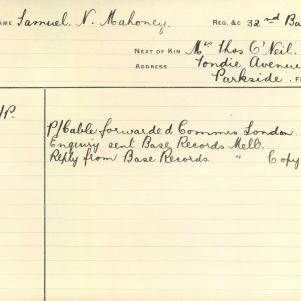 NAME Samuel. N. Mahoney. REG. &C 32nd Ba
NEXT OF KIN Mrs Thos O'Neil.
ADDRESS Tondie Avenue
Parkside.
P.
P/Cable forwarded Commrs London.
Enquiry sent Base Records Melb.
Reply from Base Records " Copy